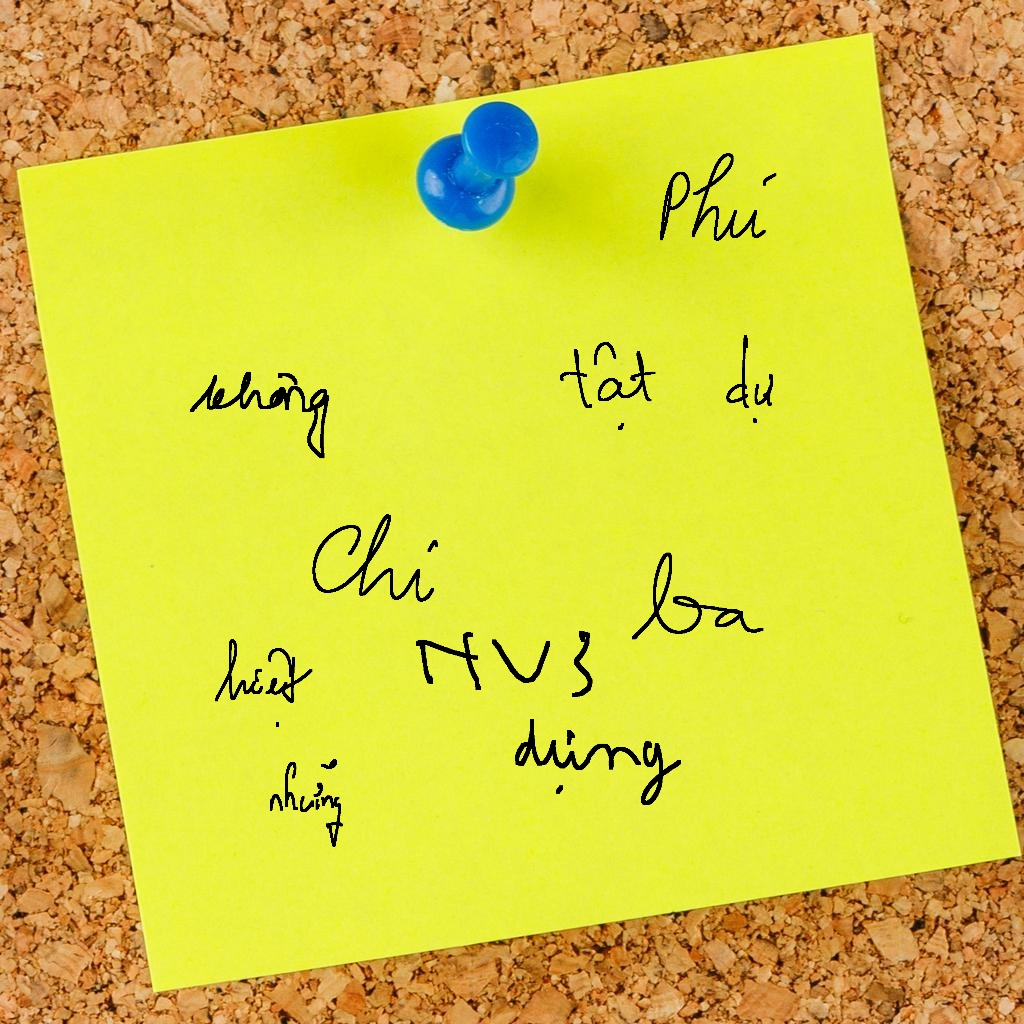 Phú
không tật dự
Chí ba
hiệt NV3
dụng
những